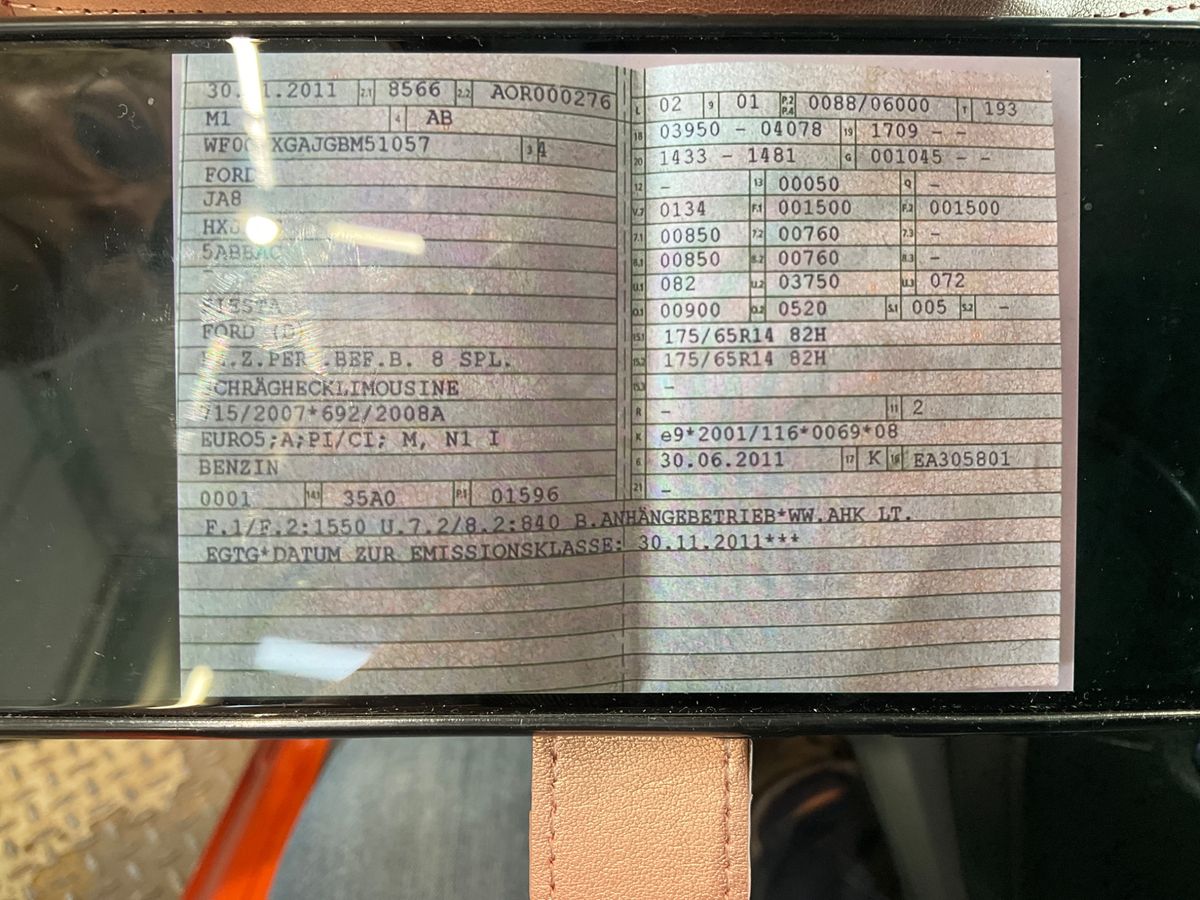 2.1 8566 2.2 AOR000276
M1 4 AB
XGAJGBM51057 3 4
FORD
JA8
FORD (D)
BEF.B. 8 SPL.
CHRÄGHECKLIMOUSINE
715/2007*692/2008A
EURO5;A;PI/CI; M, N1 I
BENZIN
0001 14.1 35A0 P.1 01596
L 02 9 01 P.2 P.4 0088/06000 T 193
18 03950 - 04078 19 1709 - -
20 1433 - 1481 G 001045 - -
12 - 13 00050 Q -
V.7 0134 F.1 001500 F.2 001500
7.1 00850 7.2 00760 7.3 -
8.1 00850 8.2 00760 8.3 -
U.1 082 U.2 03750 U.3 072
O.1 00900 O.2 0520 S.1 005 S.2 -
15.1 175/65R14 82H
15.2 175/65R14 82H
15.3 -
R - 11 2
K e9*2001/116*0069*08
6 30.06.2011 17 K 16 EA305801
21 -
F.1/F.2:1550 U.7.2/8.2:840 B.ANHÄNGEBETRIEB*WW.AHK LT.
EGTG*DATUM ZUR EMISSIONSKLASSE: 30.11.2011***